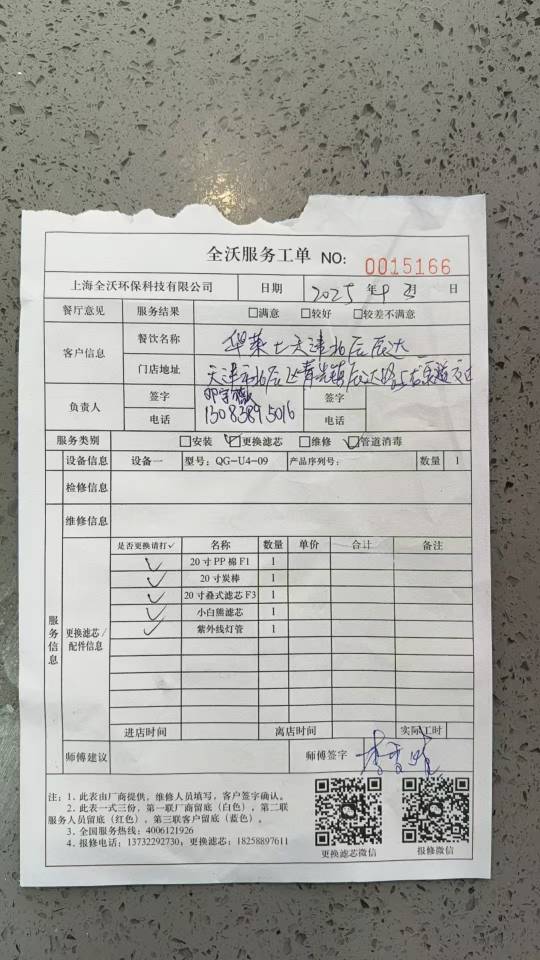 全沃服务工单 NO: 0015166
上海全沃环保科技有限公司 日期 2025 年 9 月 日
餐厅意见 服务结果 □满意 □较好 □较差不满意
客户信息 餐饮名称 华莱士天津北辰辰达
门店地址 天津市北辰区青光镇辰达路
负责人 签字 签字
电话 13083895016 电话
服务类别 □安装 ☑更换滤芯 □维修 ☑管道消毒
设备信息 设备一 型号: QG-U4-09 产品序列号: 数量 1
检修信息
维修信息
服务信息 更换滤芯/配件信息
是否更换请打✓ 名称 数量 单价 合计 备注
✓ 20寸PP棉F1 1
✓ 20寸炭棒 1
✓ 20寸叠式滤芯F3 1
✓ 小白熊滤芯 1
✓ 紫外线灯管 1
进店时间 离店时间 实际工时
师傅建议 师傅签字
注: 1. 此表由厂商提供, 维修人员填写, 客户签字确认。
2. 此表一式三份, 第一联厂商留底(白色), 第二联
服务人员留底(红色), 第三联客户留底(蓝色)。
3. 全国服务热线: 4006121926
4. 报修电话: 13732292730, 更换滤芯: 18258897611
更换滤芯微信 报修微信